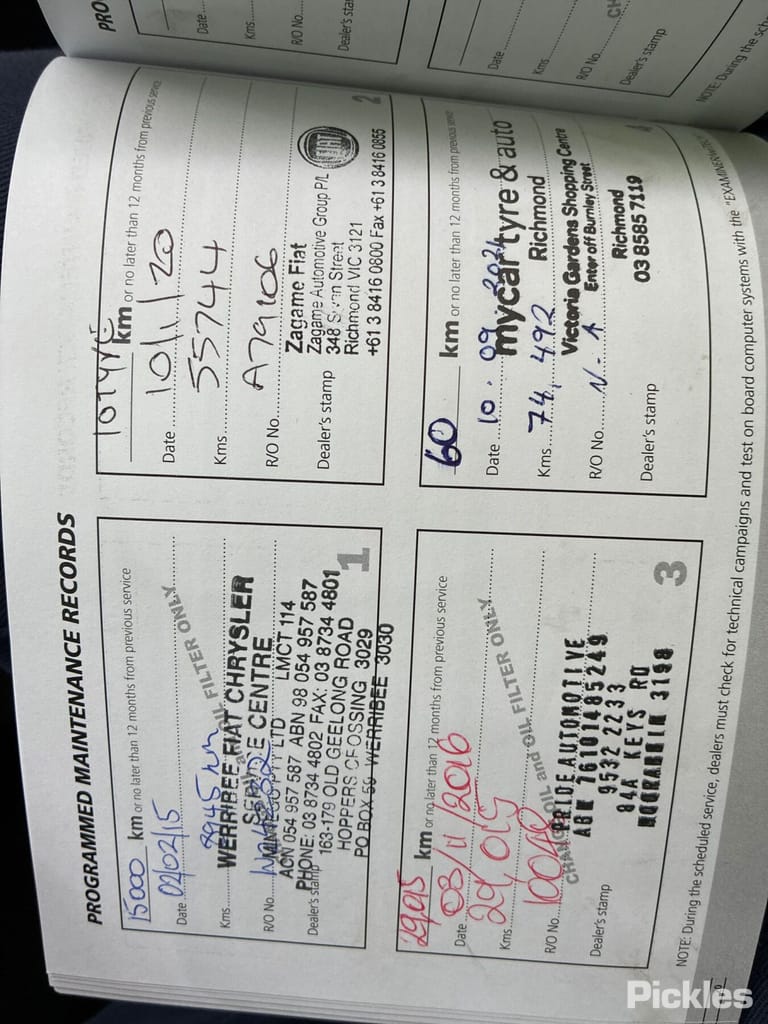 PROGRAMMED MAINTENANCE RECORDS
15000 km or no later than 12 months from previous service
Date 02/02/15
Kms
R/O No.
OIL FILTER ONLY
WERRIBEE FIAT CHRYSLER
SERVICE CENTRE
PTY LTD LMCT 114
ACN 054 957 587 ABN 98 054 957 587
PHONE: 03 8734 4802 FAX: 03 8734 4801
163-179 OLD GEELONG ROAD
HOPPERS CROSSING 3029
PO BOX 59 WERRIBEE 3030
Dealer's stamp
1
km or no later than 12 months from previous service
Date 10/1/20
Kms 55744
R/O No. A79106
Zagame Fiat
Zagame Automotive Group P/L
348 Swan Street
Richmond VIC 3121
+61 3 8416 0800 Fax +61 3 8416 0855
FIAT
Dealer's stamp
2
km or no later than 12 months from previous service
Date 03/11/2016
Kms 29015
R/O No.
CHANGE OIL and OIL FILTER ONLY
PRIDE AUTOMOTIVE
ABN 76101485249
9532 2233
84A KEYS RD
MOORABBIN 3198
Dealer's stamp
3
60 km or no later than 12 months from previous service
Date 10.09 2021
Kms 74,492
R/O No. N-A
mycar tyre & auto
Richmond
Victoria Gardens Shopping Centre
Enter off Burnley Street
Richmond
03 8585 7119
Dealer's stamp
4
NOTE: During the scheduled service, dealers must check for technical campaigns and test on board computer systems with the "EXAMINER
PRO
Date
Kms
R/O No.
Dealer's stamp
Date
Kms
R/O No.
CH
Dealer's stamp
NOTE: During the sch
Pickles